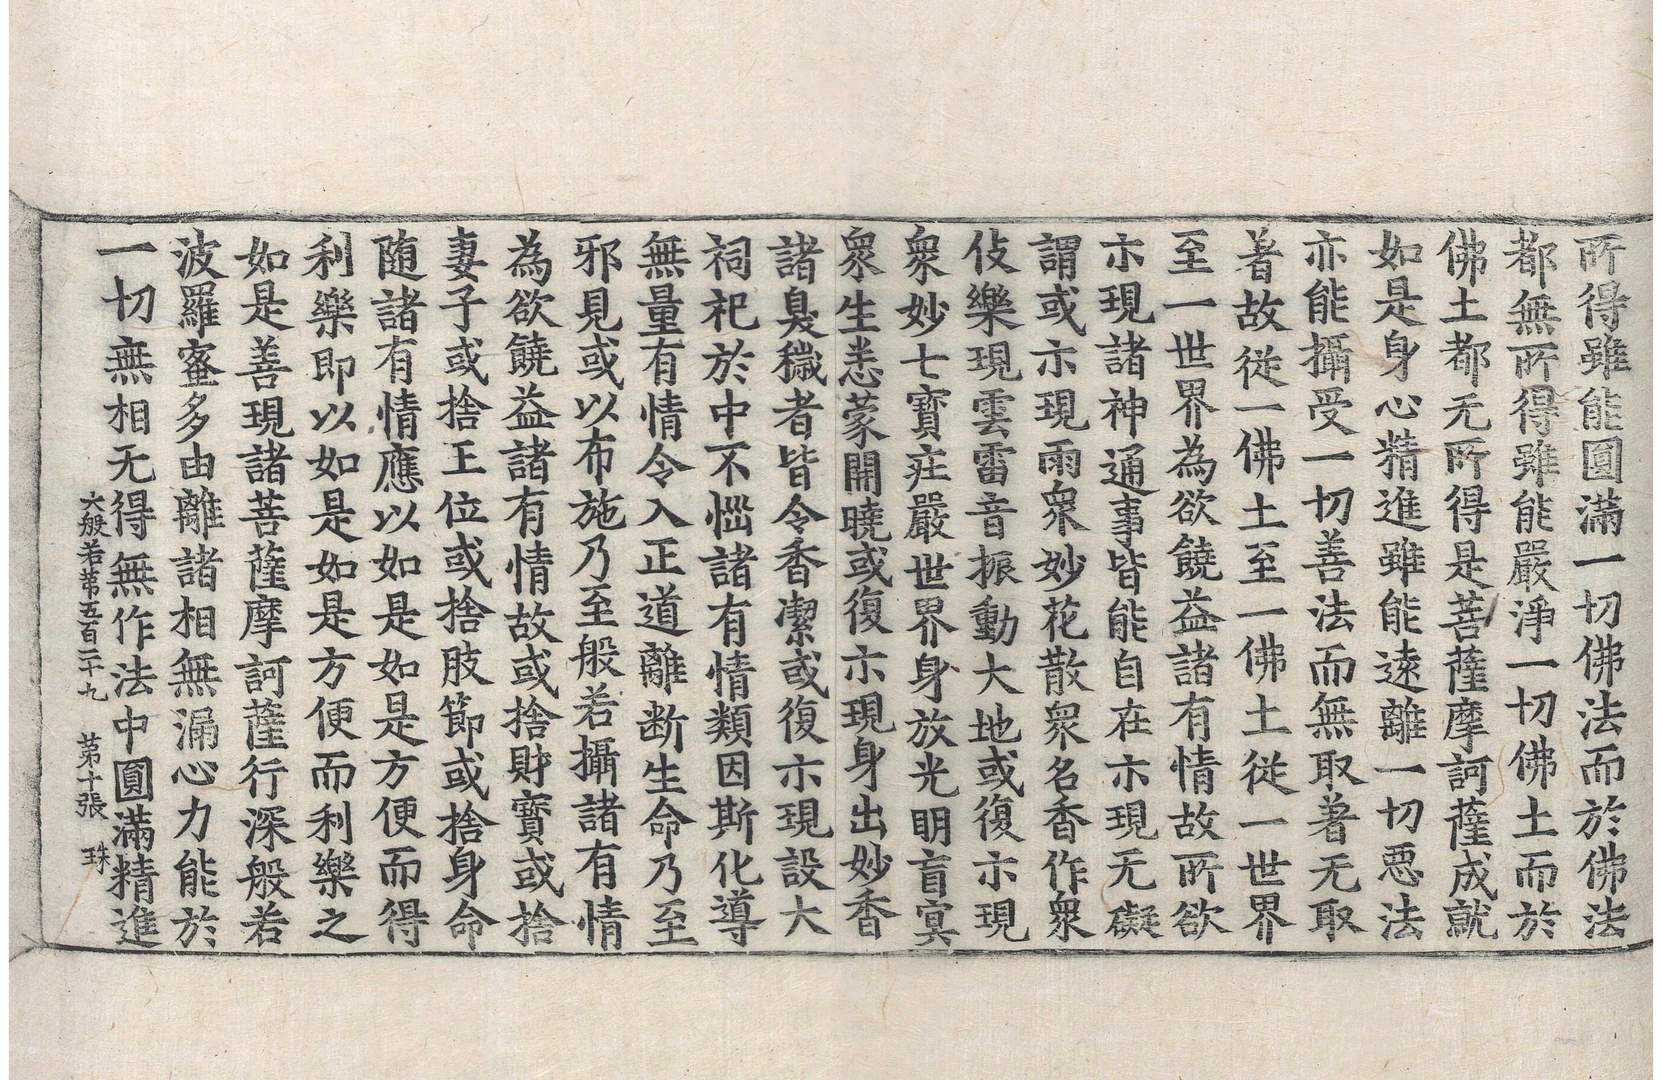 所得雖能圓滿一切佛法而於佛法
都無所得雖能嚴淨一切佛土而於
佛土都无所得是菩薩摩訶薩成就
如是身心精進雖能遠離一切惡法
亦能攝受一切善法而無取著无取
著故從一佛土至一佛土從一世界
至一世界為欲饒益諸有情故所欲
示現諸神通事皆能自在示現无礙
謂或示現雨衆妙花散衆名香作衆
伎樂現雲雷音振動大地或復示現
衆妙七寶莊嚴世界身放光明盲冥
衆生悉蒙開曉或復示現身出妙香
諸臭穢者皆令香潔或復示現設大
祠祀於中不惱諸有情類因斯化導
無量有情令入正道離断生命乃至
邪見或以布施乃至般若攝諸有情
為欲饒益諸有情故或捨財寳或捨
妻子或捨王位或捨肢節或捨身命
随諸有情應以如是如是方便而得
利樂即以如是如是方便而利樂之
如是善現諸菩薩摩訶薩行深般若
波羅蜜多由離諸相無漏心力能於
一切無相无得無作法中圓滿精進
大般若第五百二十九 第十張 珠